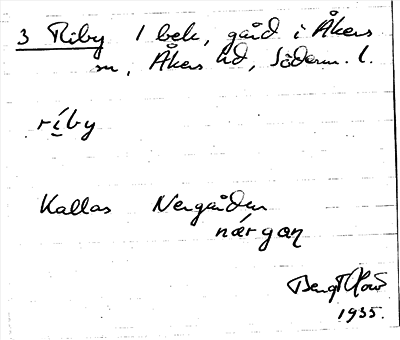 3 Riby 1 bek, gård i Åkers
sn, Åkers hd, Söderm. l.
ríby
Kallas Nergården
nærgaɳ
Bengt
1935.